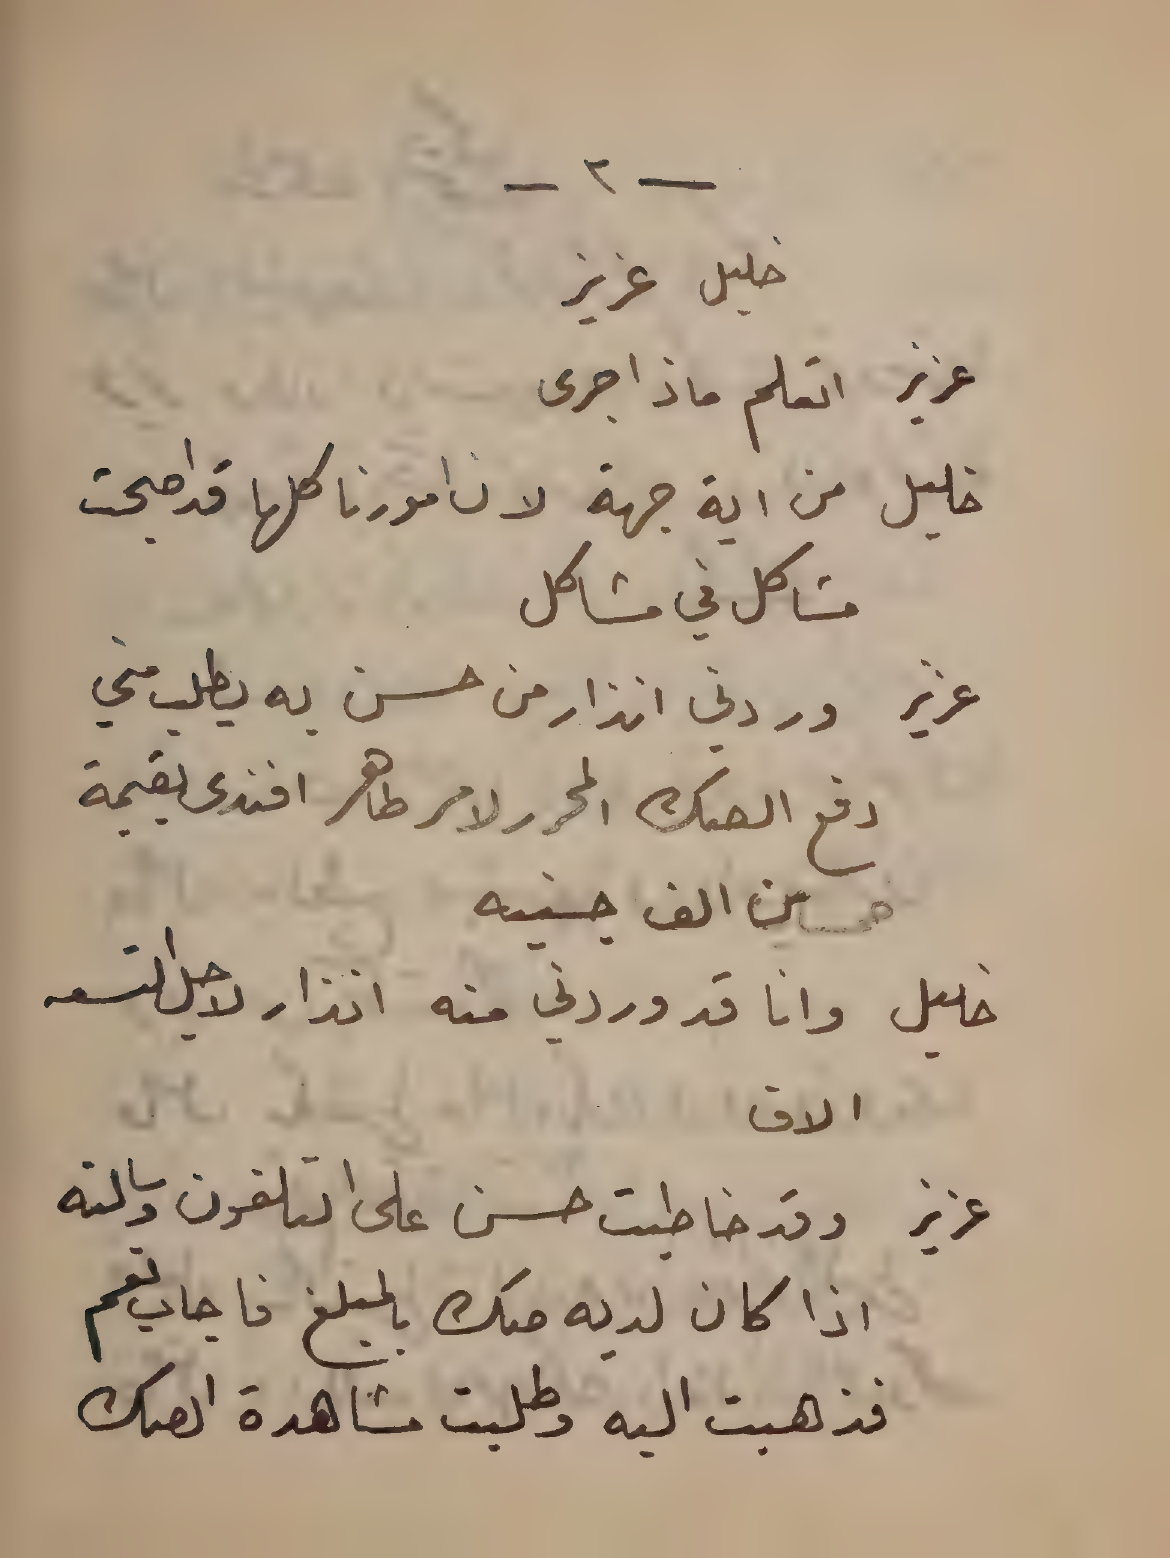 — ٢ —
خليل عزيز
عزيز اتعلم ماذا جرى
خليل من اية جهة لان امورنا كلها قد اصبحت
مشاكل في مشاكل
عزيز وردني انذار من حسن به يطلب مني
دفع الصك المحرر لامر طاهر افندى بقيمة
خمسين الف جنيه
خليل وانا قد وردني منه انذار لاجل التسعه
الاف
عزيز وقد خاطبت حسن على التلفون وسالته
اذا كان لديه صك بالمبلغ فاجاب نعم
فذهبت اليه وطلبت مشاهدة الصك